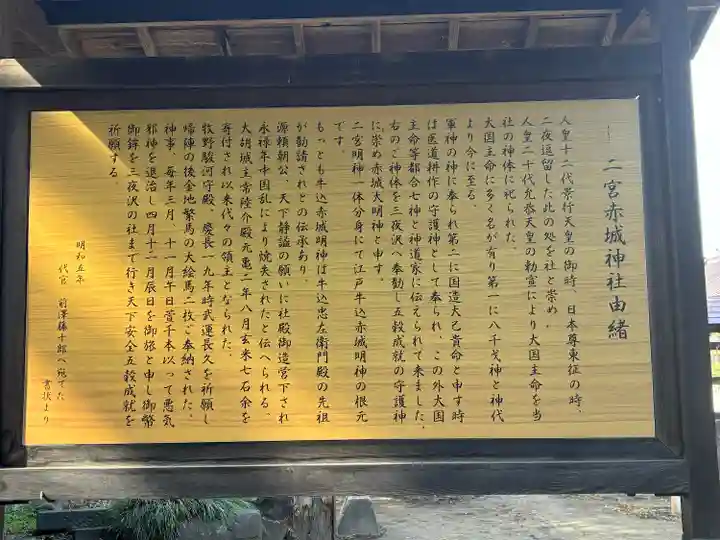 二宮赤城神社由緒
人皇十二代景行天皇の御時、日本尊東征の時、
二夜逗留した此の処を社と崇め、
人皇二十代允恭天皇の勅宣により大国主命を当
社の神体に祀られた。
大国主命に多く名が有り第一に八千戈神と神代
より今に至る。
軍神の神に奉られ第二に国造大己貴命と申す時
は医道耕作の守護神として奉られ、この外大国
主命等都合七神と神道家に伝えられて来ました。
右のご神体を三夜沢へ奉勧し五穀成就の守護神
に崇め赤城大明神と申す。
二宮明神一体分身にて江戸牛込赤城明神の根元
です。
もっとも牛込赤城明神は牛込忠左衛門殿の先祖
が勧請されとの伝承あり。
源頼朝公、天下静謐の願いに社殿御造営下され
永禄年中国乱により焼失されたと伝へられる。
大胡城主常陸介殿元亀二年八月玄米七石余を
寄付され以来代々の領主となられた。
牧野駿河守殿、慶長一九年時武運長久を祈願し
帰陣の後金地繋馬の大絵馬二枚ご奉納された。
神事、毎年三月、十一月午日萱千本以って悪気
邪神を退治し四月十二月辰日を御旅と申し御幣
御鉾を三夜沢の社まで行き天下安全五穀成就を
祈願する。
明和五年
代官 前澤藤十郎へ宛てた
書状より